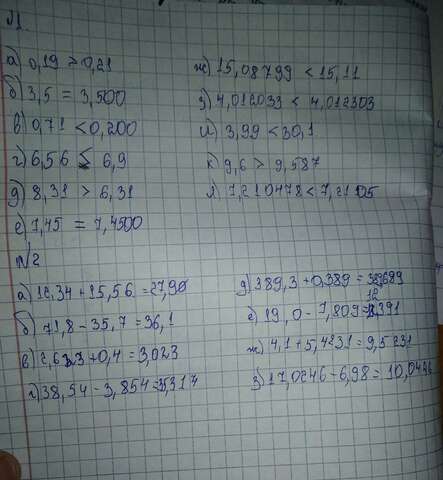 №1.
а) 0,19 > 0,21
б) 3,5 = 3,500
в) 0,71 < 0,200
г) 6,56 < 6,9
д) 8,31 > 6,31
е) 7,45 = 7,4500
ж) 15,08799 < 15,11
з) 4,012033 < 4,012303
и) 3,99 < 30,1
к) 9,6 > 9,587
л) 7,210478 < 7,2105
№2
а) 12,34 + 15,56 = 27,90
б) 71,8 - 35,7 = 36,1
в) 2,623 + 0,4 = 3,023
г) 38,54 - 3,854 =
д) 389,3 + 0,389 =
е) 19,0 - 7,809 =
ж) 4,1 + 5,4231 = 9,5231
з) 17,0246 - 6,98 = 10,0446